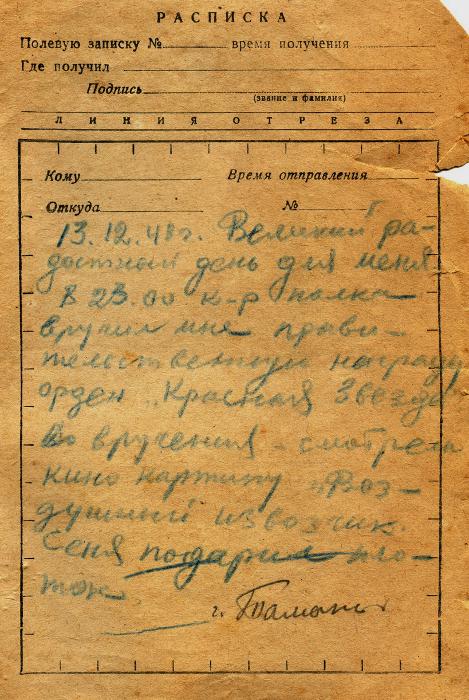 РАСПИСКА
Полевую записку № время получения
Где получил
Подпись
(звание и фамилия)
ЛИНИЯ ОТРЕЗА
Кому Время отправления
Откуда №
13.12.43г. Великий ра-
достный день для меня
В 23.00 к-р полка
вручил мне прави-
тельственную награду
орден „Красная Звезда
До вручения - смотрели
кино картину „Воз-
душный извозчик.
Сеня подарил пло-
ток
г. Тамань